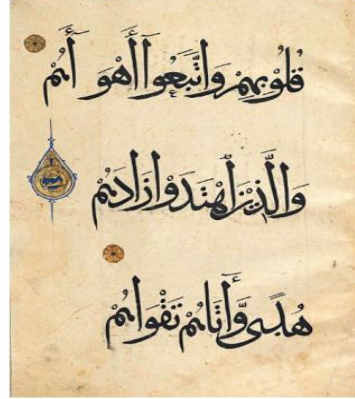 قُلُوبِهِمْ وَاتَّبَعُوا أَهْوَآءَهُمْ
وَالَّذِينَ اهْتَدَوْا زَادَهُمْ
هُدًى وَآتَاهُمْ تَقْوَاهُمْ